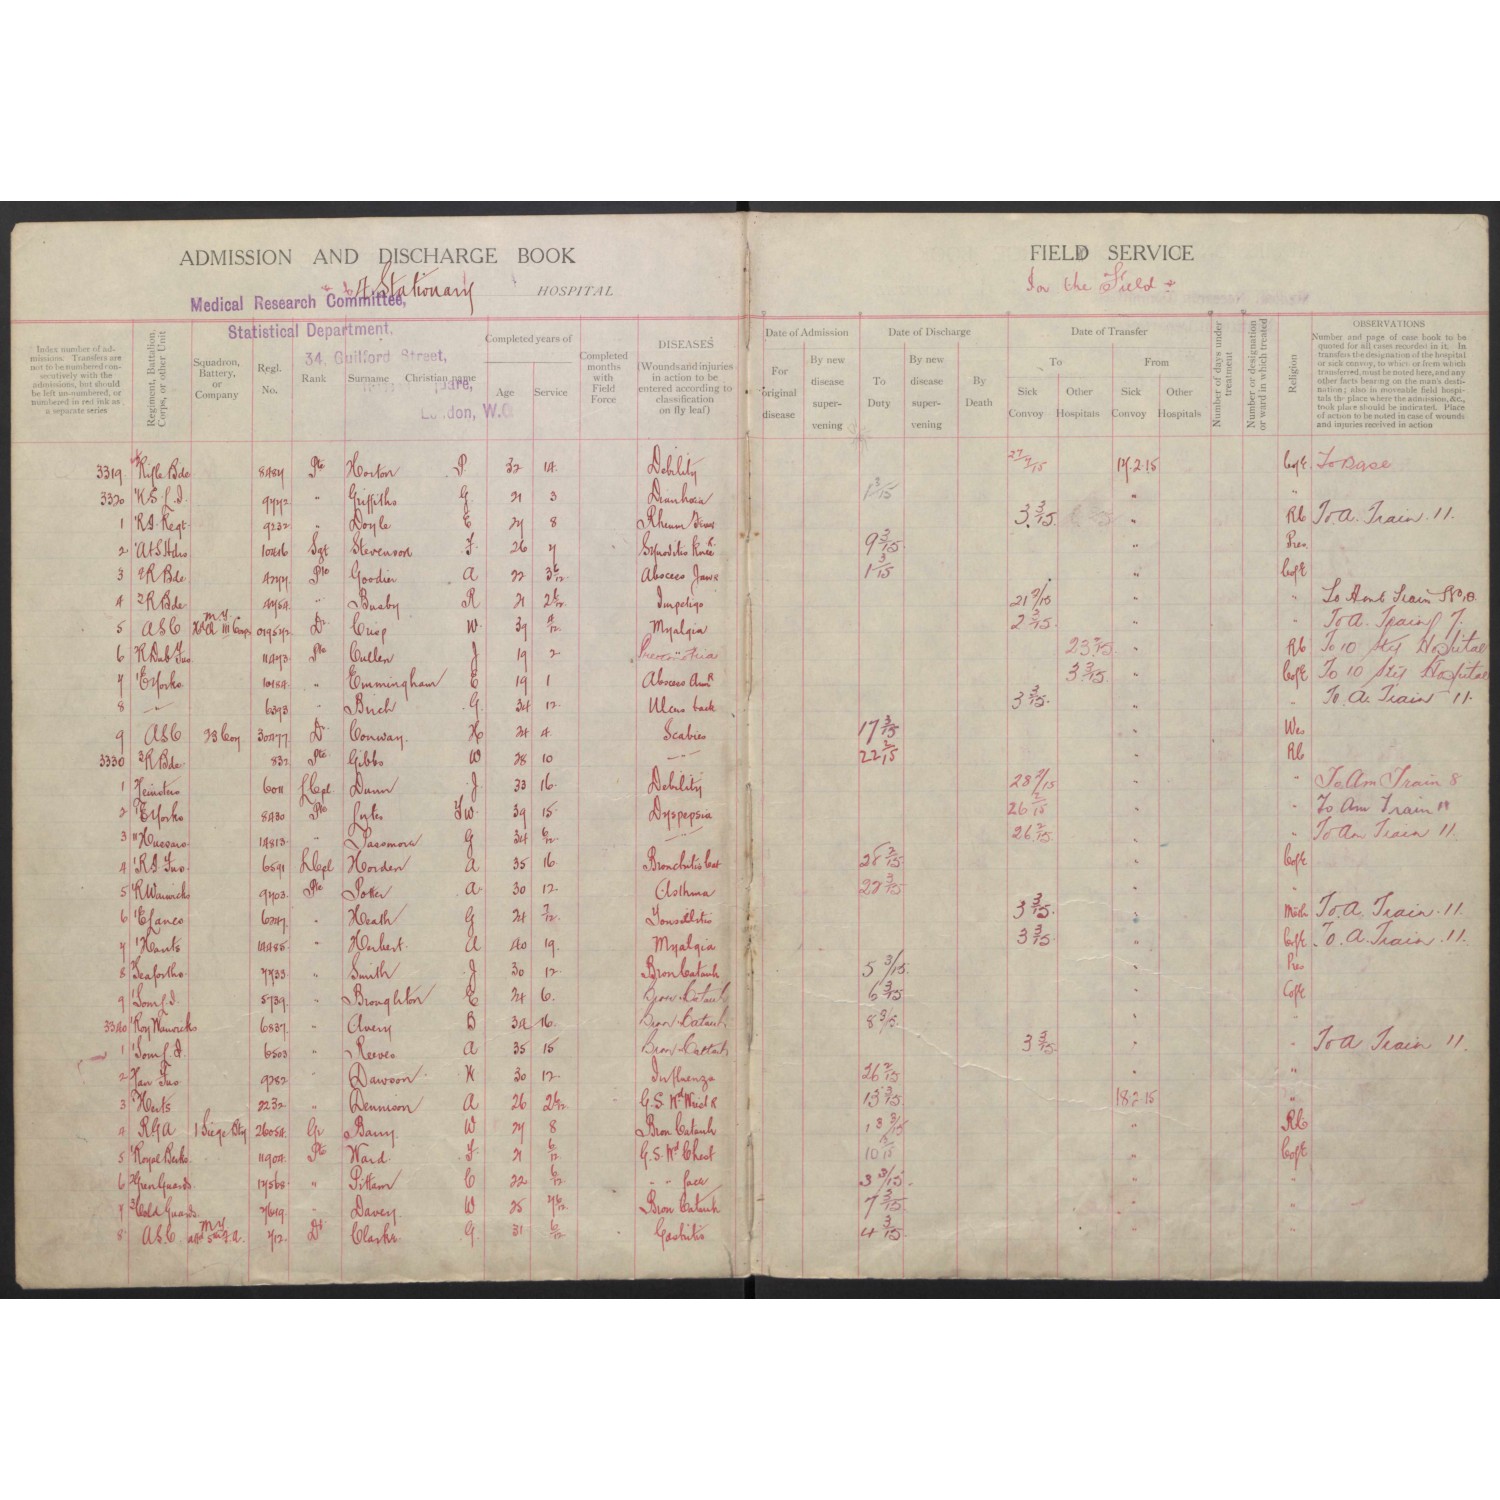 ADMISSION AND DISCHARGE BOOK
FIELD SERVICE
4 Stationary HOSPITAL
In the Field
Medical Research Committee,
Statistical Department.
34, Guilford Street,
London, W.C.
Index number of admissions. Transfers are not to be numbered consecutively with the admissions, but should be left un-numbered, or numbered in red ink as a separate series
Regiment, Battalion, Corps, or other Unit
Squadron, Battery, or Company
Regl. No.
Rank
Surname Christian name
Completed years of
Age
Service
Completed months with Field Force
DISEASES
(Wounds and injuries in action to be entered according to classification on fly leaf)
Date of Admission
For original disease
By new disease supervening
Date of Discharge
To Duty
By new disease supervening
By Death
Date of Transfer
To
Sick Convoy
Other Hospitals
From
Sick Convoy
Other Hospitals
Number of days under treatment
Number or designation or ward in which treated
Religion
OBSERVATIONS
Number and page of case book to be quoted for all cases recorded in it. In transfers the designation of the hospital or sick convoy, to which or from which transferred, must be noted here, and any other facts bearing on the man's destination; also in moveable field hospitals the place where the admission, &c., took place should be indicated. Place of action to be noted in case of wounds and injuries received in action
3319 Rifle Bde 8484 Pte Horton P. 32 14 Debility 17.2.15 CofE To Base
3320 KSLI 9442 " Griffiths G. 21 3 Diarrhoea 1 3/15 " "
1 RI Regt 9232 " Doyle E 24 8 Rheum 3 3/15 " To A. Train 11.
2 A&S Hdrs Sgt Stevenson F. 26 Synovitis Knee R 9 3/15 " Pres.
3 RBde Pte Goodier A 22 3 6/12 Abscess Jaws 1 3/15 CofE
4 2RBde " Busby R 21 2 6/12 Impetigo 21 2/15 "
5 ASC Dr Crisp W. 39 Myalgia 2 3/15 " " To A. Train 7.
6 R Dub Fus Pte Cullen J 19 2 Pneumonia 23 2/15 " To 10 Sty Hospital
7 E Yorks " Emmingham E 19 1 Abscess Arm R 3 3/15 " CofE To 10 Sty Hospital
8 " 6393 " Birch G. 34 12 Ulcers back 3 3/15 " " To A. Train 11.
9 ASC 23 Coy 30477 Dr Conway H 24 4 Scabies 17 3/15 " Wes
3330 3RBde 832 Pte Gibbs W 28 10 " 22 2/15 "
1 6011 LCpl Dunn J 33 16 Debility 28 2/15 " " To Am Train 8
2 E Yorks 8430 Pte Lyles 39 15 Dyspepsia 26 2/15 " " To Am Train 11
3 11 Hussars 14813 " Passmore G 24 6/12 " 26 2/15 " " To Am Train 11.
4 RI Fus 6591 LCpl Horden A 35 16 28 2/15 " CofE
5 R Warwicks 9403 Pte Potter A 30 12 Asthma " "
6 E Lancs " Heath G 24 7/12 Tonsillitis 3 3/15 " To A. Train 11.
7 Hants " Herbert A 40 19 Myalgia 3 3/15 " CofE To A. Train 11.
8 Seaforths 7733 " Smith J 30 12 Bron Catarrh 5 3/15 " Pres
9 Som L.I. 5739 " Broughton E 24 6 Bron Catarrh 6 3/15 " CofE
3340 Roy Warwicks 6837 " Avery B 34 16 Bron Catarrh 8 3/15 " "
1 Som L.I. 6503 " Reeves A 35 15 Bron Catarrh 3 3/15 " " To A Train 11.
2 Lan Fus 9282 Dawson K 30 12 Influenza 26 2/15 " "
3 Herts 2232 " Dennison A 26 2 6/12 G.S. Wd Wrist R 13 3/15 18.2.15 "
4 RGA 1 Siege Bty 26054 Gr Barry W 24 8 Bron Catarrh 13 3/15 "
5 Royal Berks 11904 Pte Ward F. 21 6/12 G.S. Wd Chest " CofE
6 Gren Guards 17568 " Pittam C 22 6/12 " " face 3 3/15 " "
7 3 Cold Guards " Davey W 25 Bron Catarrh 7 3/15 " "
8 ASC Dr Clarke G. 31 6/12 Gastritis 4 3/15 " "